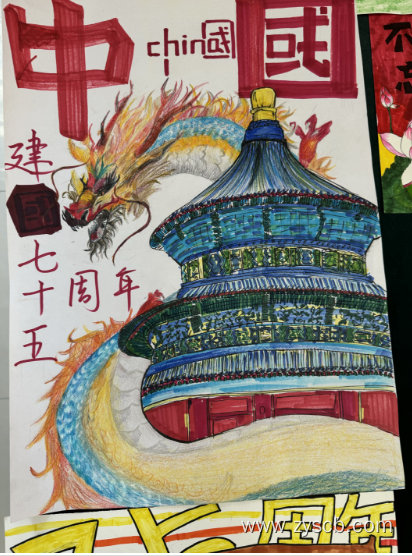 中 chin國 國
建國七十五周年
不忘
周年
www.zyscb.com